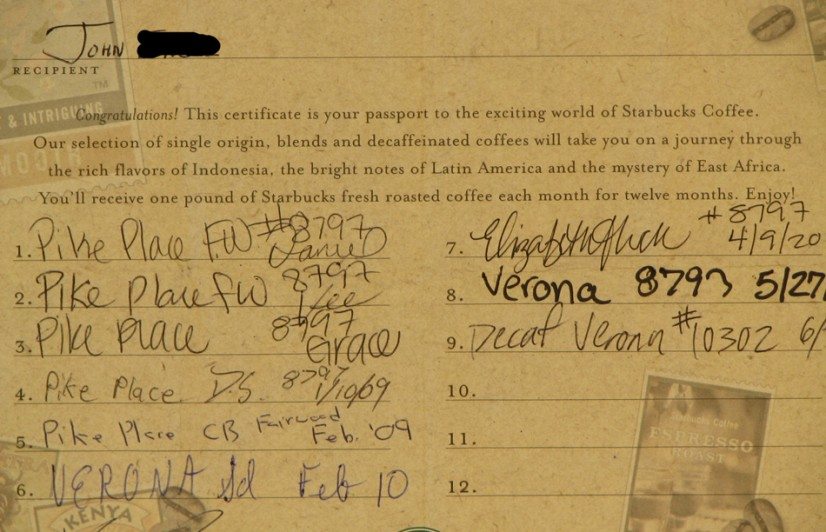 John
RECIPIENT
TM
& INTRIGUING
Congratulations! This certificate is your passport to the exciting world of Starbucks Coffee.
Our selection of single origin, blends and decaffeinated coffees will take you on a journey through
the rich flavors of Indonesia, the bright notes of Latin America and the mystery of East Africa.
You'll receive one pound of Starbucks fresh roasted coffee each month for twelve months. Enjoy!
1. Pike Place F.W. #8797 Daniel
2. Pike Place FW 8797
3. Pike Place 8797 Grace
4. Pike Place D.S. 8797 1/10/09
5. Pike Place CB Fairwood Feb. '09
6. VERONA Sd Feb 10
7. Elizabeth #8797 4/9/20
8. Verona 8793 5/27/
9. Decaf Verona #10302 6/
10.
11.
12.
Starbucks Coffee
ESPRESSO
ROAST
KENYA